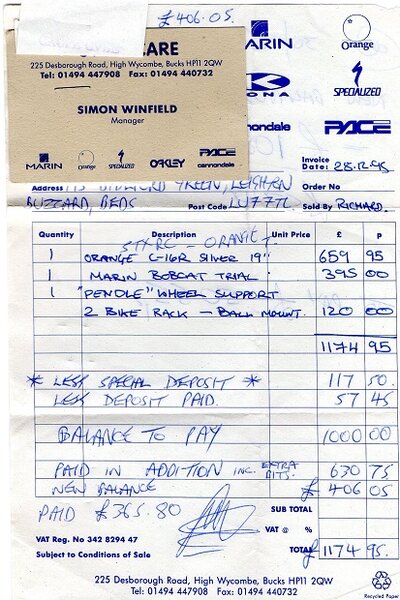 £406.05.
CARE
225 Desborough Road, High Wycombe, Bucks HP11 2QW
Tel: 01494 447908 Fax: 01494 440732
SIMON WINFIELD
Manager
MARIN Orange SPECIALIZED OAKLEY PACE cannondale
MARIN Orange
KONA SPECIALIZED
nnondale PACE
Invoice Date: 28.12.95
Address GREEN, LEIGHTON Order No
BUZZARD, BEDS Post Code LU7 7TL Sold By RICHARD.
Quantity Description Unit Price £ p
STX RC - ORANGE
1 ORANGE C-16R SILVER 19" 659 95
1 MARIN BOBCAT TRIAL 395 00
1 "PENDLE" WHEEL SUPPORT
2 BIKE RACK - BALL MOUNT. 120 00
1174 95
* LESS SPECIAL DEPOSIT * 117 50.
LESS DEPOSIT PAID. 57 45
BALANCE TO PAY 1000 00
PAID IN ADDITION INC. EXTRA BITS. 630 75
NEW BALANCE £ 406 05
PAID £365.80
SUB TOTAL
VAT Reg. No 342 8294 47 VAT @ %
Subject to Conditions of Sale TOTAL £1174 95.
225 Desborough Road, High Wycombe, Bucks HP11 2QW
Tel: 01494 447908 Fax: 01494 440732
Recycled Paper